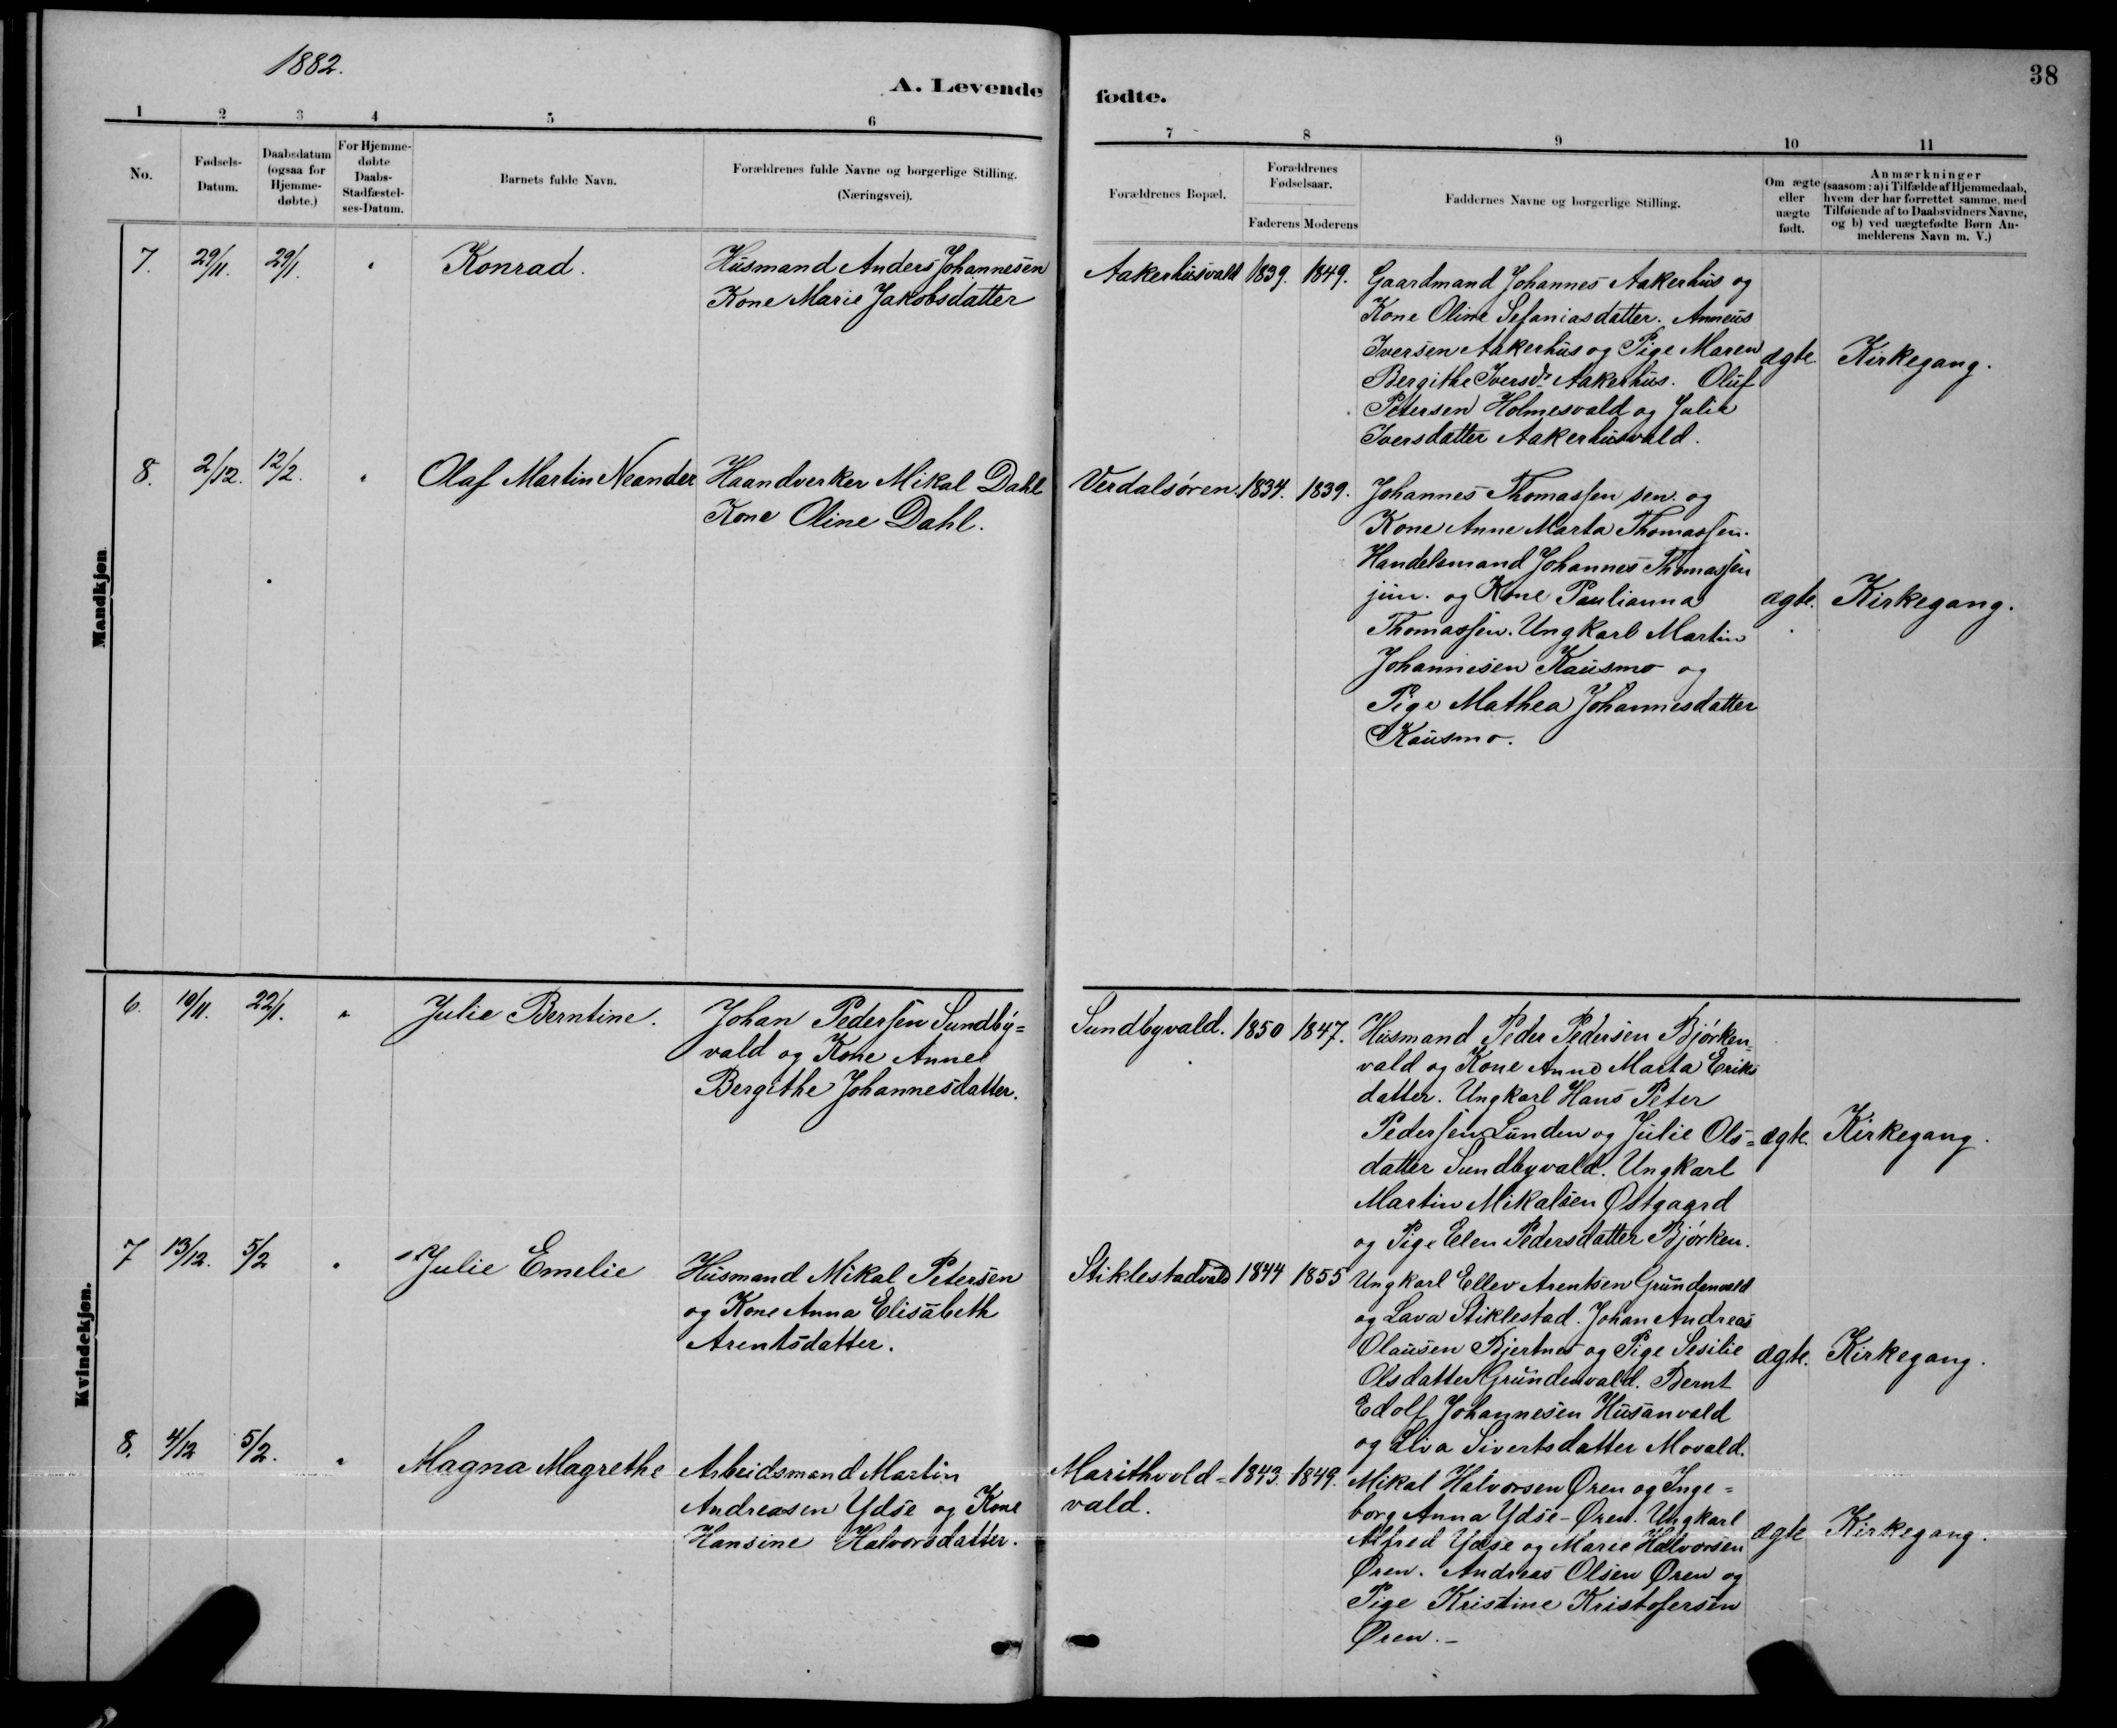 1882.
38
A. Levende fødte.
1 2 3 4 5 6 7 8 9 10 11
No.
Fødsels-
Datum.
Daabsdatum
(ogsaa for
Hjemme-
døbte.)
For Hjemme-
døbte
Daabs-
Stadfæstel-
ses-Datum.
Barnets fulde Navn.
Forældrenes fulde Navne og borgerlige Stilling.
(Næringsvei).
Forældrenes Bopæl.
Forældrenes
Fødselsaar.
Faderens Moderens
Faddernes Navne og borgerlige Stilling.
Om ægte
eller
uægte
født.
Anmærkninger
(saasom: a) i Tilfælde af Hjemmedaab,
hvem der har forrettet samme, med
Tilføiende af to Daabsvidners Navne,
og b) ved uægtefødte Børn An-
melderens Navn m. V.)
Mandkjøn
7. 29/11. 29/1. " Konrad.
Husmand Anders Johannesen
Kone Marie Jakobsdatter
Aakerhusvald 1839. 1849.
Gaardmand Johannes Aakerhus og
Kone Oline Sefaniasdatter. Anneus
Iversen Aakerhus og Pige Maren
Bergithe Iversdr Aakerhus. Oluf
Petersen Holmesvald og Julie
Iversdatter Aakerhusvald.
ægte. Kirkegang.
8. 2/12. 12/2. " Olaf Martin Neander
Haandverker Mikal Dahl
Kone Oline Dahl.
Verdalsøren. 1834. 1839.
Johannes Thomassen sen. og
Kone Anne Marta Thomassen.
Handelsmand Johannes Thomassen
jun. og Kone Paulianna
Thomassen. Ungkarl Martin
Johannesen Kausmo og
Pige Mathea Johannesdatter
Kausmo.
ægte. Kirkegang.
Kvindekjøn.
6. 19/11. 22/1. " Julie Berntine.
Johan Pedersen Sundby=
vald og Kone Anne
Bergithe Johannesdatter.
Sundbyvald. 1850 1847.
Husmand Peder Pedersen Bjørken=
vald og Kone Anne Marta Eriks
datter. Ungkarl Hans Peter
Pedersen Lunden og Julie Ols=
datter Sundbyvald. Ungkarl
Martin Mikalsen Østgaard
og Pige Elen Pedersdatter Bjørken.
ægte. Kirkegang.
7 13/12. 5/2 " Julie Emelie
Husmand Mikal Petersen
og Kone Anna Elisabeth
Arentsdatter.
Stiklestadvald 1844 1855
Ungkarl Ellev Arentsen Grundenvald
og Lava Stiklestad. Johan Andreas
Olausen Bjertnes og Pige Sesilie
Olsdatter Grundenvald. Bernt
Edolf Johannesen Husanvald
og Liva Sivertsdatter Movald.
ægte. Kirkegang.
8. 4/12 5/2. " Magna Magrethe
Arbeidsmand Martin
Andreasen Ydse og Kone
Hansine Halvorsdatter.
Marithvold=
vald.
1843. 1849.
Mikal Halvorsen Øren og Inge=
borg Anna Ydse-Øren. Ungkarl
Alfred Ydse og Marie Halvorsen
Øren. Andreas Olsen Øren og
Pige Kristine Kristofersen
Øren.-
ægte Kirkegang.